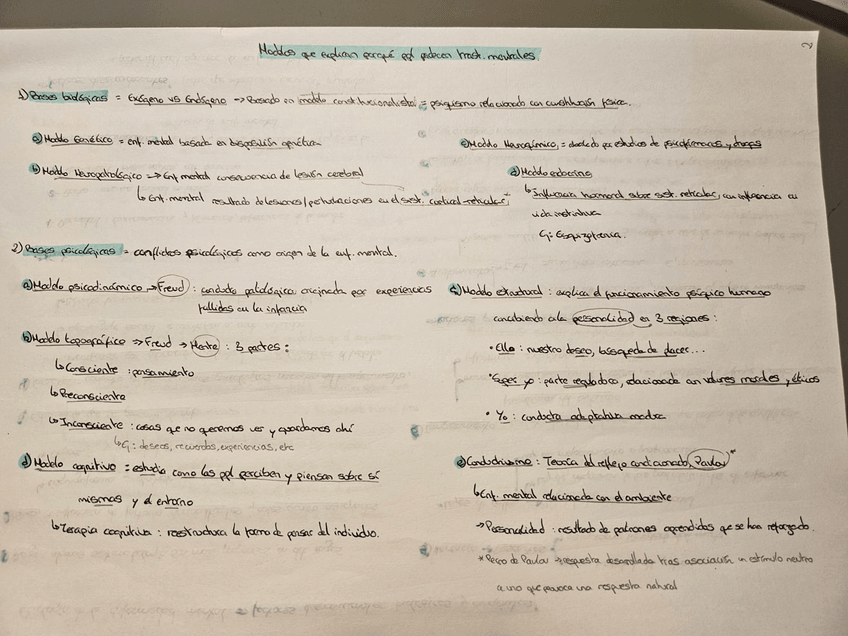 2
Modelos que explican porqué ppl padecen trast. mentales
1) Bases biológicas = Exógeno vs Endógeno → Basado en modelo constitucionalista = psiquismo relacionado con constitución física.
a) Modelo Genético = enf. mental basada en disposición genética
b) Modelo Neuropatológico → Enf. mental consecuencia de lesión cerebral
↳ Enf. mental resultado de lesiones/perturbaciones en el sist. cortical-reticular
c) Modelo Neuroquímico = por estudios de psicofármacos y drogas
d) Modelo endocrino
↳ Influencia hormonal sobre sist. reticular, con influencia en
vida instintiva
Ej: Esquizofrenia.
2) Bases psicológicas = conflictos psicológicos como origen de la enf. mental.
a) Modelo psicodinámico → Freud : conducta patológica originada por experiencias
fallidas en la infancia
b) Modelo topográfico → Freud → Mente : 3 partes :
↳ Consciente : pensamiento
↳ Preconsciente
↳ Inconsciente : cosas que no queremos ver y guardamos ahí
↳ Ej : deseos, recuerdos, experiencias, etc
c) Modelo estructural : explica el funcionamiento psíquico humano
concibiendo a la personalidad en 3 regiones :
• Ello : nuestro deseo, búsqueda de placer...
• Super yo : parte reguladora, relacionada con valores morales y éticos
• Yo : conducta adaptativa madura
d) Modelo cognitivo = estudia como las ppl perciben y piensan sobre sí
mismas y el entorno
↳ Terapia cognitiva : reestructura la forma de pensar del individuo.
e) Conductivismo : Teoría del reflejo condicionado, Pavlov *
↳ Enf. mental relacionada con el ambiente
→ Personalidad : resultado de patrones aprendidos que se han reforzado.
* Perro de Pavlov → respuesta desarrollada tras asociación un estímulo neutro
a uno que provoca una respuesta natural